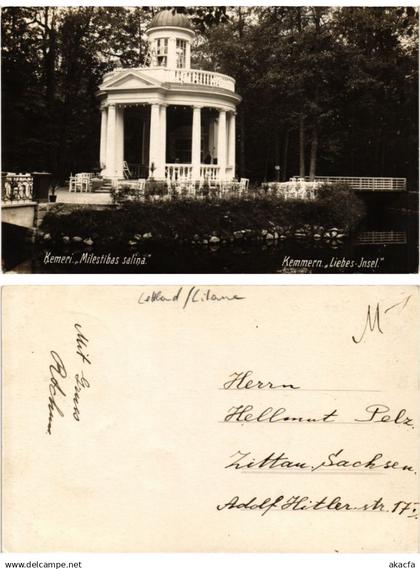 Ķemeri. „Mīlestības saliņa."
Kemmern. „Liebes-Insel."
Lettland/Litauen
M-1
Mit Gruss
Herrn
Hellmut Pelz.
Zittau. Sachsen.
Adolf Hitler-str. 17
www.akacfa.com